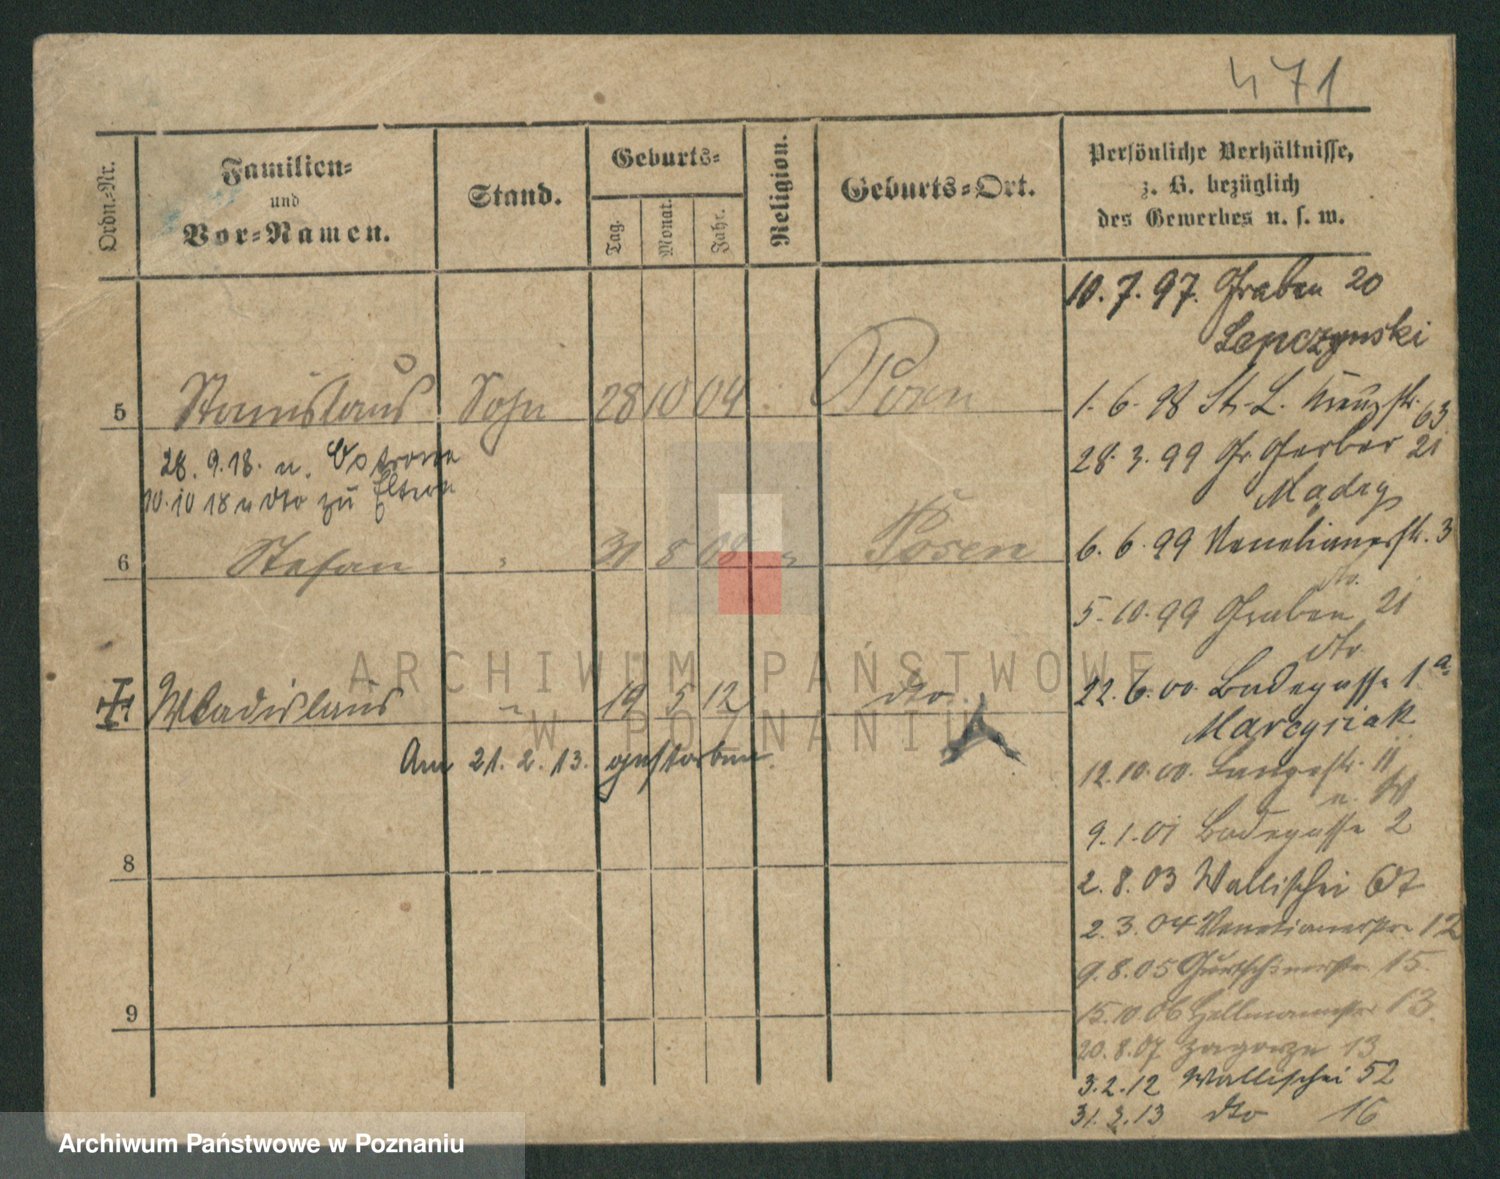 471
Ordn.-Nr.
Familien-
und
Vor-Namen.
Stand.
Geburts-
Tag.
Monat.
Jahr.
Religion.
Geburts-Ort.
Persönliche Verhältnisse,
z. B. bezüglich
des Gewerbes u. s. w.
5 Stanislaus Sohn 28 10 04 Posen
28. 9. 18. n. Ostrowo
10. 10 18 v dto zu Eltern
6 Stefan 31 8 08 " Posen
Wladislaus " 19 5 12 dto.
Am 21. 2. 13. gestorben.
8
9
10. 7. 97. Graben 20
Lepczynski
1. 6. 98 St. L. Kreuzstr. 63
28. 3. 99 Gr Gerber 21
Mądry
6. 6. 99 Venetianerstr. 3
dto.
5. 10. 99 Graben 21
dto
22. 6. 00. Badegasse 1a
Marcyniak
12. 10. 00. Langestr. 11
9. 1. 01 Badegasse 2
2. 8. 03 Wallischei 67
2. 3. 04 Venetianerstr 12
9. 8. 05 15
15. 10. 06 Hellmannstr 13
20. 8. 07 Zagorze 13
3. 2. 12 Wallischei 52
31. 3. 13 dto 16
ARCHIWUM PAŃSTWOWE
W POZNANIU
Archiwum Państwowe w Poznaniu